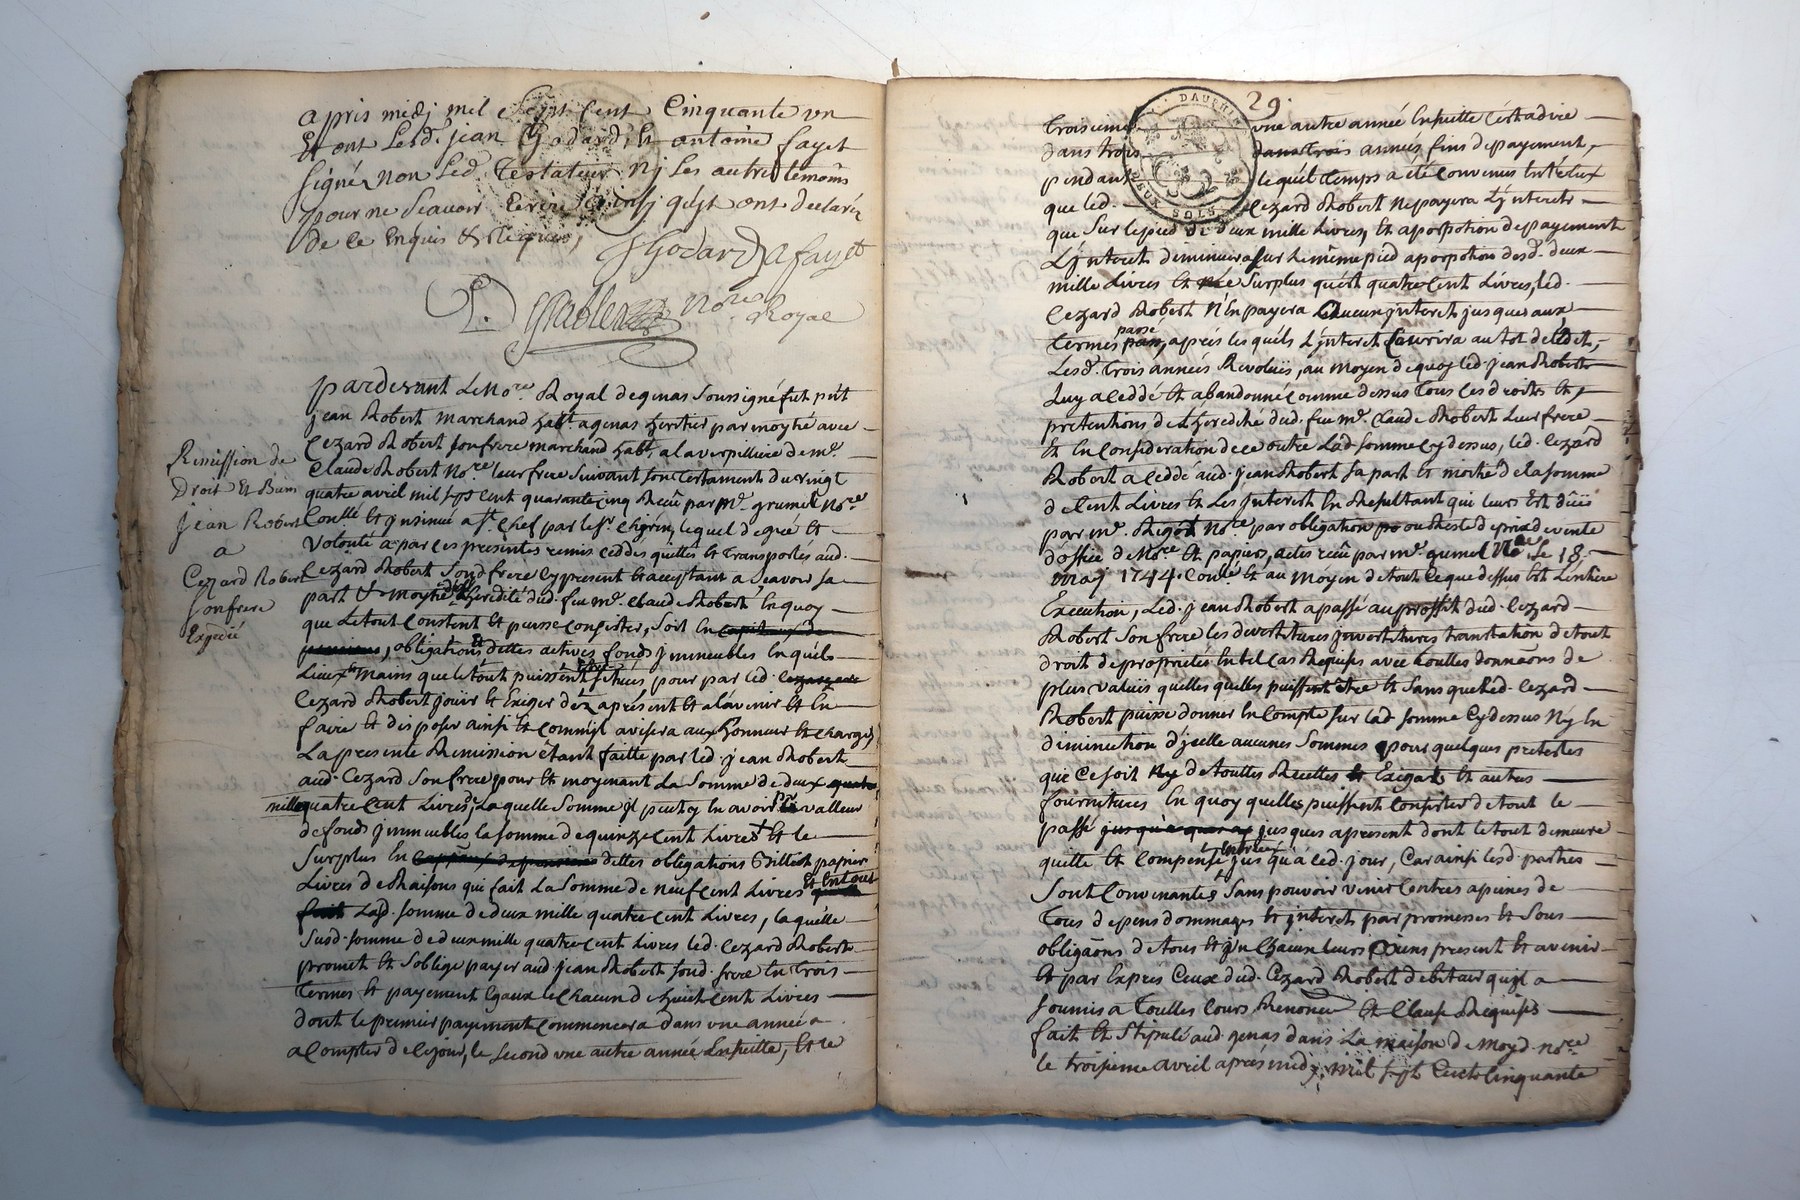 apris midj mil sept Cent Cinquante un
Et ont Lesd. jean Godard, Et antoine fayet
signéz non Led. Testateur Nj Les autres temoins
pour ne sçauoir Ecrire ainsj qu'jls ont declaréz
de ce Enquis & Requis,
JGodard Afayet
Nore Royal
pardeuant Le Nore. Royal degenas soussigné fut pnt
jean Robert marchand habt agenas heritier par moytié auec
Cezard Robert son frere marchand habt. a lauerpilliere de me.
Claude Robert Nore leur frere suiuant son Testament du vingt
quatre avril mil sept cent quarante cinq Recû par Me. grumel Nore
Conllé Et jnsinué a st. chef par le sr. lequel de gré Et
Volonté a par ces presentes remis ceddés quittés Et Transportés aud.
Cezard Robert sond frere cy present Et acceptant a sçavoir sa
part & moytié de L'heredité dud. feu me. Claude Robert En quoy
que Le tout Consteut Et puisse Consister, soit En
obligations Et dettes actives, fonds jmmeubles En quéls
Lieux Et mains que le tout puissent être situés pour par led.
Cezard Robert jouir Et Exiger déz aprésent Et a l'avenir Et En
faire Et disposer ainsi Et Comm'jl avisera aux honneur Et charges
La presente Remission étant faitte par led. jean Robert
aud. Cezard son frere pour Et moyenant La somme de deux
mille quatre Cent Livres, La quelle somme jl peut y En avoir valleur
de fonds jmmeubles la somme de quinze Cent Livres Et le
surplus En dettes obligations Billets papier
Livres de Raisons qui fait La somme de neuf Cent Livres Et En tout
Lad. somme de deux mille quatre Cent Livres, laquélle
susd. somme de deux mille quatre Cent Livres led. Cezard Robert
promet Et s'oblige payer aud jean Robert sond. frere En trois
Termes Et payement Egaux de Chacun d huict Cent Livres
dont le premier payement Commencera dans vne année a
a Compter de Cejour, le second vne autre année Ensuitte, Et le
Remission de
Droit Et Biens
jean Robert
a
Cezard Robert
son frere
Expedié
29.
DAUPHINE
DEUX SOLS
troisieme vne autre année Ensuitte C'ést adire
dans trois dans Trois années, fins de payement,
pendant lequél Temps a été Convenus Entr'eux
que led. Cezard Robert ne payera L'jnterets
que sur le pied de deux mille Livres, Et a porpotion de payement
L'jnteret diminuera sur le même pied a porpotion desd. deux
mille Livres Et Le surplus qu'ést quatre Cent Livres, led.
Cezard Robert N'En payera Aucun jnteret jusques aux
termés passe, aprés les quéls L'jnteret Courrira au tot de L'édit,
Lesd. Trois années Revolües, au moyen de quoy led. jean Robert
Luy a Ceddé Et abandonné Comme dessus Tous ces droits Et
pretentions de L'heredité dud. feu me. Claude Robert Leur frere
Et En Consideration de ce outre Lad. somme Cydessus, led. Cezard
Robert a Ceddé aud. jean Robert sa part Et moitié de la somme
de Cent Livres Et Les jnterest En Resultant qui leurs Est düe
par me. Nore par obligation ou Reste de prix de vente
d'office de Nore Et papiers, actes recû par me. grumel Nore Le 18.
may 1744. Conllé Et au Moyen de tout Ce que dessus Est L'entiere
Execution, Led. jean Robert a passé au proffit dud. Cezard
Robert son frere les devestitures jnvestitures translation de tout
droit de propriétés En tel Cas Requises avec touttes donnaons de
plus values quelles quelles puissent être Et sans que Led. Cezard
Robert puisse donner En Compte sur lad. somme Cydessus Ny En
diminution d'jcelle aucunes sommes pour quelques pretextes
que Ce soit Ny de touttes Recettes Exigats Et autres
fournitures En quoy quelles puissent Consister de tout le
passé jusques apresent dont le tout demeure
quitte Et Compensé Entr'eux jusqu'à Ced. jour, Car ainsi lesd. parties
sont Convenantes sans pouvoir venir Contres apeines de
Tous depens dommages Et jnterets par promesses Et sous
obligaons de tous Et un Chacun leurs Biens present Et avenir
Et par Exprés Ceux dud. Cezard Robert debiteur qu'jl a
soumis a Touttes Cours Renoncé Et Clause Requises
fait Et stipulé aud genas dans La maison de Moyd. nore
le troisieme avril aprés midj, mil sept Cent Cinquante